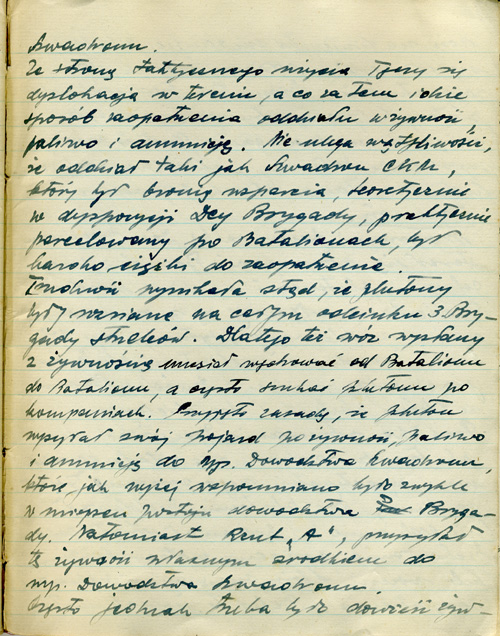 Szwadronu.
Ze strony taktycznego użycia łączy się
dyslokacja w terenie, a co za tem idzie
sposób zaopatrzenia oddziału w żywność,
paliwo i amunicję. Nie ulega wątpliwości,
że oddział taki jak Szwadron CKM,
który był bronią wsparcia, teoretycznie
w dyspozycji Dcy Brygady, praktycznie
parcelowany po Batalionach, był
bardzo ciężki do zaopatrzenia.
Trudność wynikała stąd, że plutony
były rozsiane na całym odcinku 3. Bry-
gady strzelców. Dlatego też wóz wysłany
z żywnością musiał wędrować od Batalionu
do Batalionu, a często szukać plutonu po
kompaniach. Przyjęto zasadę, że pluton
wysyłał swój pojazd po żywność, paliwo
i amunicję do mp. Dowództwa Szwadronu,
które jak wyżej wspomniano było zwykle
w miejscu postoju dowództwa Bryga-
dy. Natomiast Rzut „A", przysyłał
tę żywność własnym środkiem do
mp. Dowództwa Szwadronu.
Często jednak trzeba było dowieźć żyw-